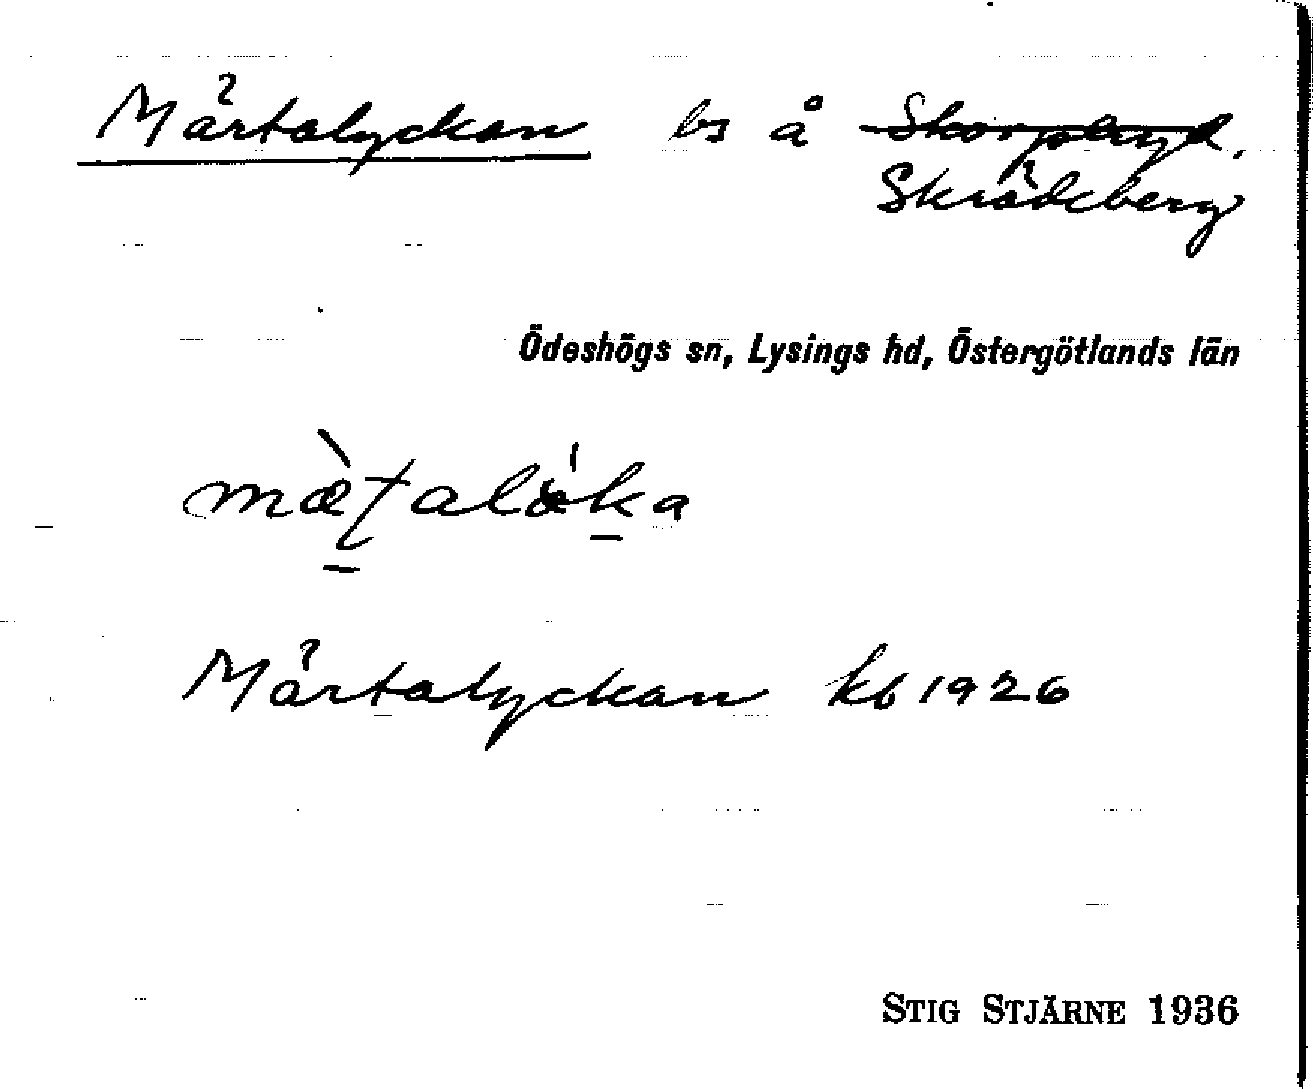 Märtalyckan bs å Skorperyd.
Skrädeberg
Ödeshögs sn, Lysings hd, Östergötlands län
Märtalyckan kb 1926
STIG STJÄRNE 1936